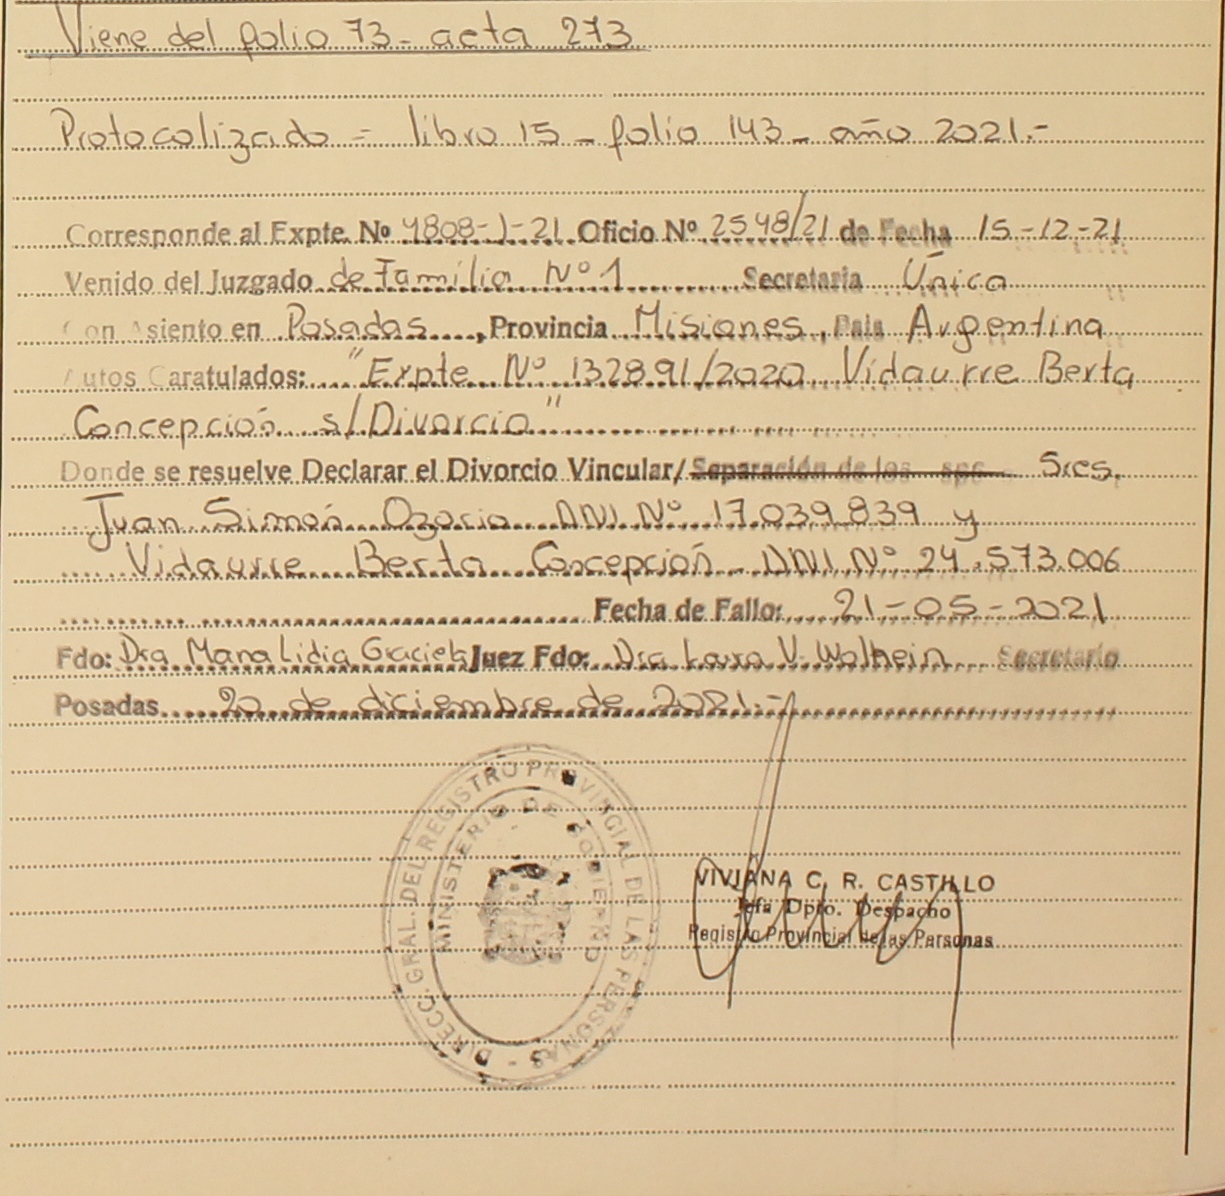 Viene del folio 73- acta 273
Protocolizado = libro 15 - folio 143 - año 2021.-
Corresponde al Expte. Nº 4808-J-21 Oficio Nº 2548/21 de Fecha 15-12-21
Venido del Juzgado de Familia Nº 1 Secretaria Única
Con Asiento en Posadas, Provincia Misiones, Pais Argentina
Autos Caratulados: "Expte Nº 132891/2020 Vidaurre Berta
Concepción s/Divorcio"
Donde se resuelve Declarar el Divorcio Vincular/Separación de los Sres.
Juan Simón Ozorio DNI Nº 17.039.839 y
Vidaurre Berta Concepción - DNI Nº 24.573.006
Fecha de Fallo: 21-05-2021
Fdo: Dra Maria Lidia Graciela Juez Fdo: Dra Laura V. Secretario
Posadas 20 de diciembre de 2021.-
DIRECC. GRAL. DEL REGISTRO PROVINCIAL DE LAS PERSONAS -
MINISTERIO DE GOBIERNO
VIVIANA C. R. CASTILLO
Jefa Dpto. Despacho
Registro Provincial de las Personas